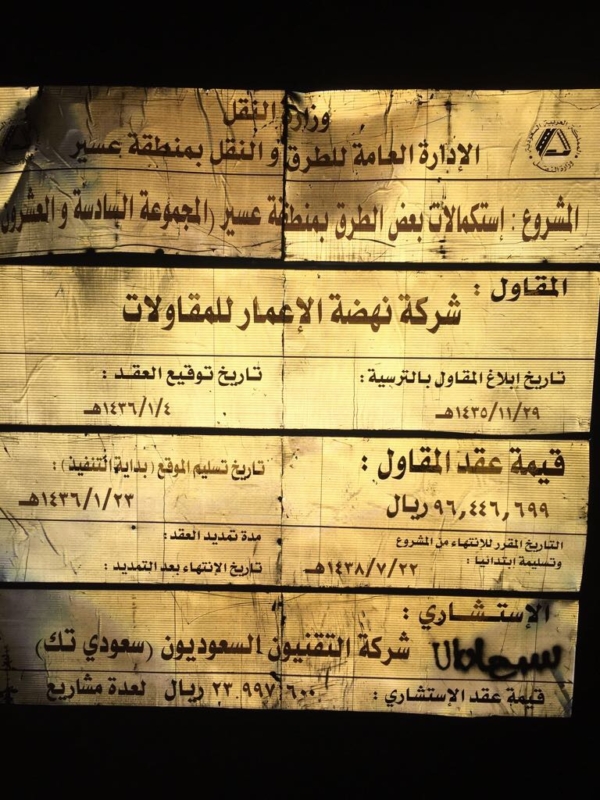 وزارة النقل
الإدارة العامة للطرق و النقل بمنطقة عسير
المشروع : إستكمالات بعض الطرق بمنطقة عسير (المجموعة السادسة و العشرون
المقاول :
شركة نهضة الإعمار للمقاولات
تاريخ إبلاغ المقاول بالترسية :
١٤٣٥/١١/٢٩هـ
تاريخ توقيع العقد :
١٤٣٦/١/٤هـ
قيمة عقد المقاول :
٩٦,٤٤٦,٦٩٩ ريال
تاريخ تسليم الموقع (بداية التنفيذ) :
١٤٣٦/١/٢٣هـ
التاريخ المقرر للإنتهاء من المشروع
وتسليمة إبتدائيا :
١٤٣٨/٧/٢٢هـ
مدة تمديد العقد :
تاريخ الإنتهاء بعد التمديد :
الإستشاري :
شركة التقنيون السعوديون (سعودي تك)
قيمة عقد الإستشاري :
٢٣,٩٩٧,٦٠٠ ريال لعدة مشاريع